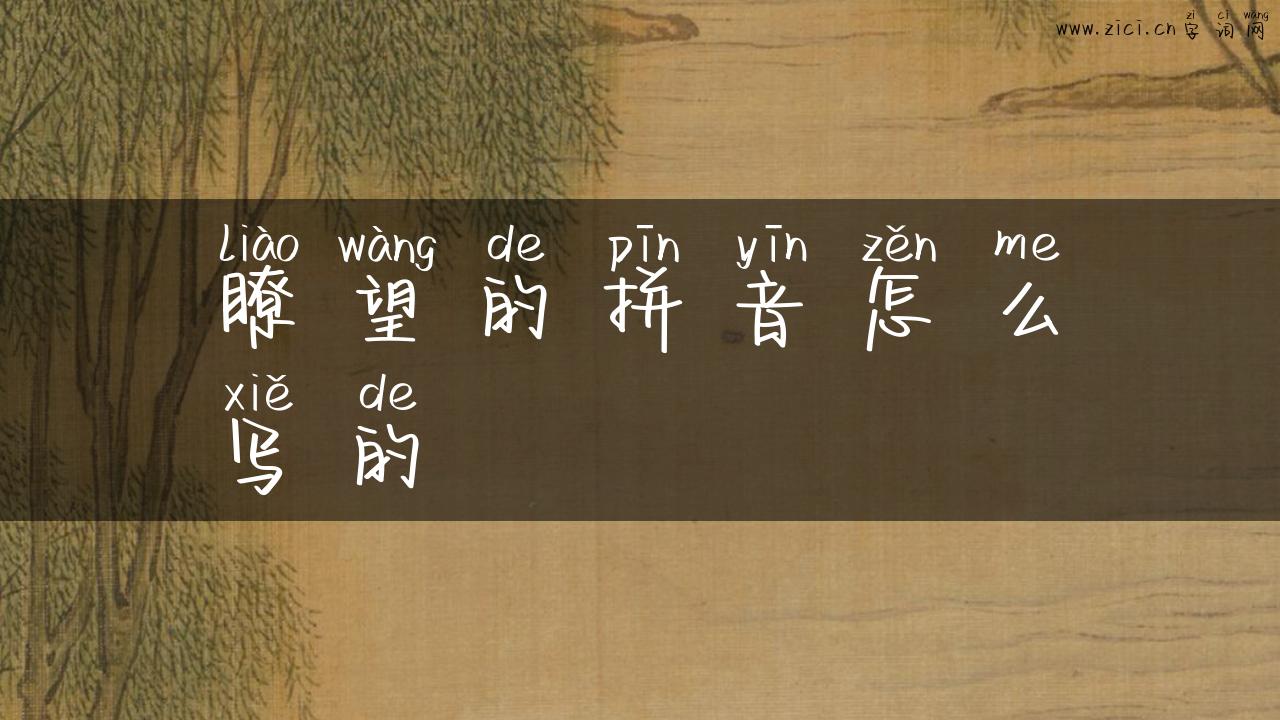 zì cí wǎng
www.zici.cn 字词网
liào wàng de pīn yīn zěn me
瞭望的拼音怎么
xiě de
写的